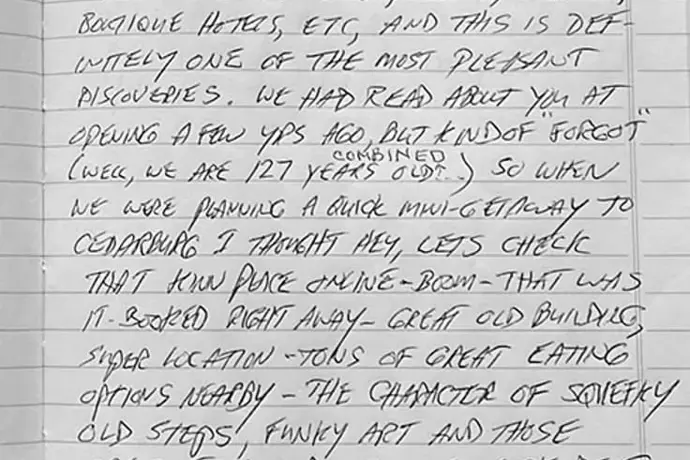 BOUTIQUE HOTELS, ETC, AND THIS IS DEF-
INITELY ONE OF THE MOST PLEASANT
DISCOVERIES. WE HAD READ ABOUT YOU AT
OPENING A FEW YRS AGO, BUT KIND OF "FORGOT"
COMBINED
(WELL, WE ARE 127 YEARS OLD!.) SO WHEN
WE WERE PLANNING A QUICK MINI-GETAWAY TO
CEDARBURG I THOUGHT HEY, LETS CHECK
THAT KINN PLACE ONLINE - BOOM - THAT WAS
IT - BOOKED RIGHT AWAY - GREAT OLD BUILDING,
SUPER LOCATION - TONS OF GREAT EATING
OPTIONS NEARBY - THE CHARACTER OF SQUEEKY
OLD STEPS, FUNKY ART AND THOSE